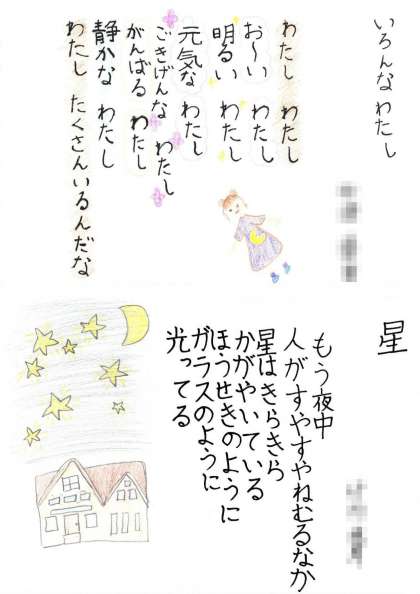 いろんなわたし
わたし　わたし
お〜い　わたし
明るい　わたし
元気な　わたし
ごきげんな　わたし
がんばる　わたし
静かな　わたし
わたし　たくさんいるんだな
星
もう夜中
人がすやすやねむるなか
星はきらきら
かがやいている
ほうせきのように
ガラスのように
光ってる